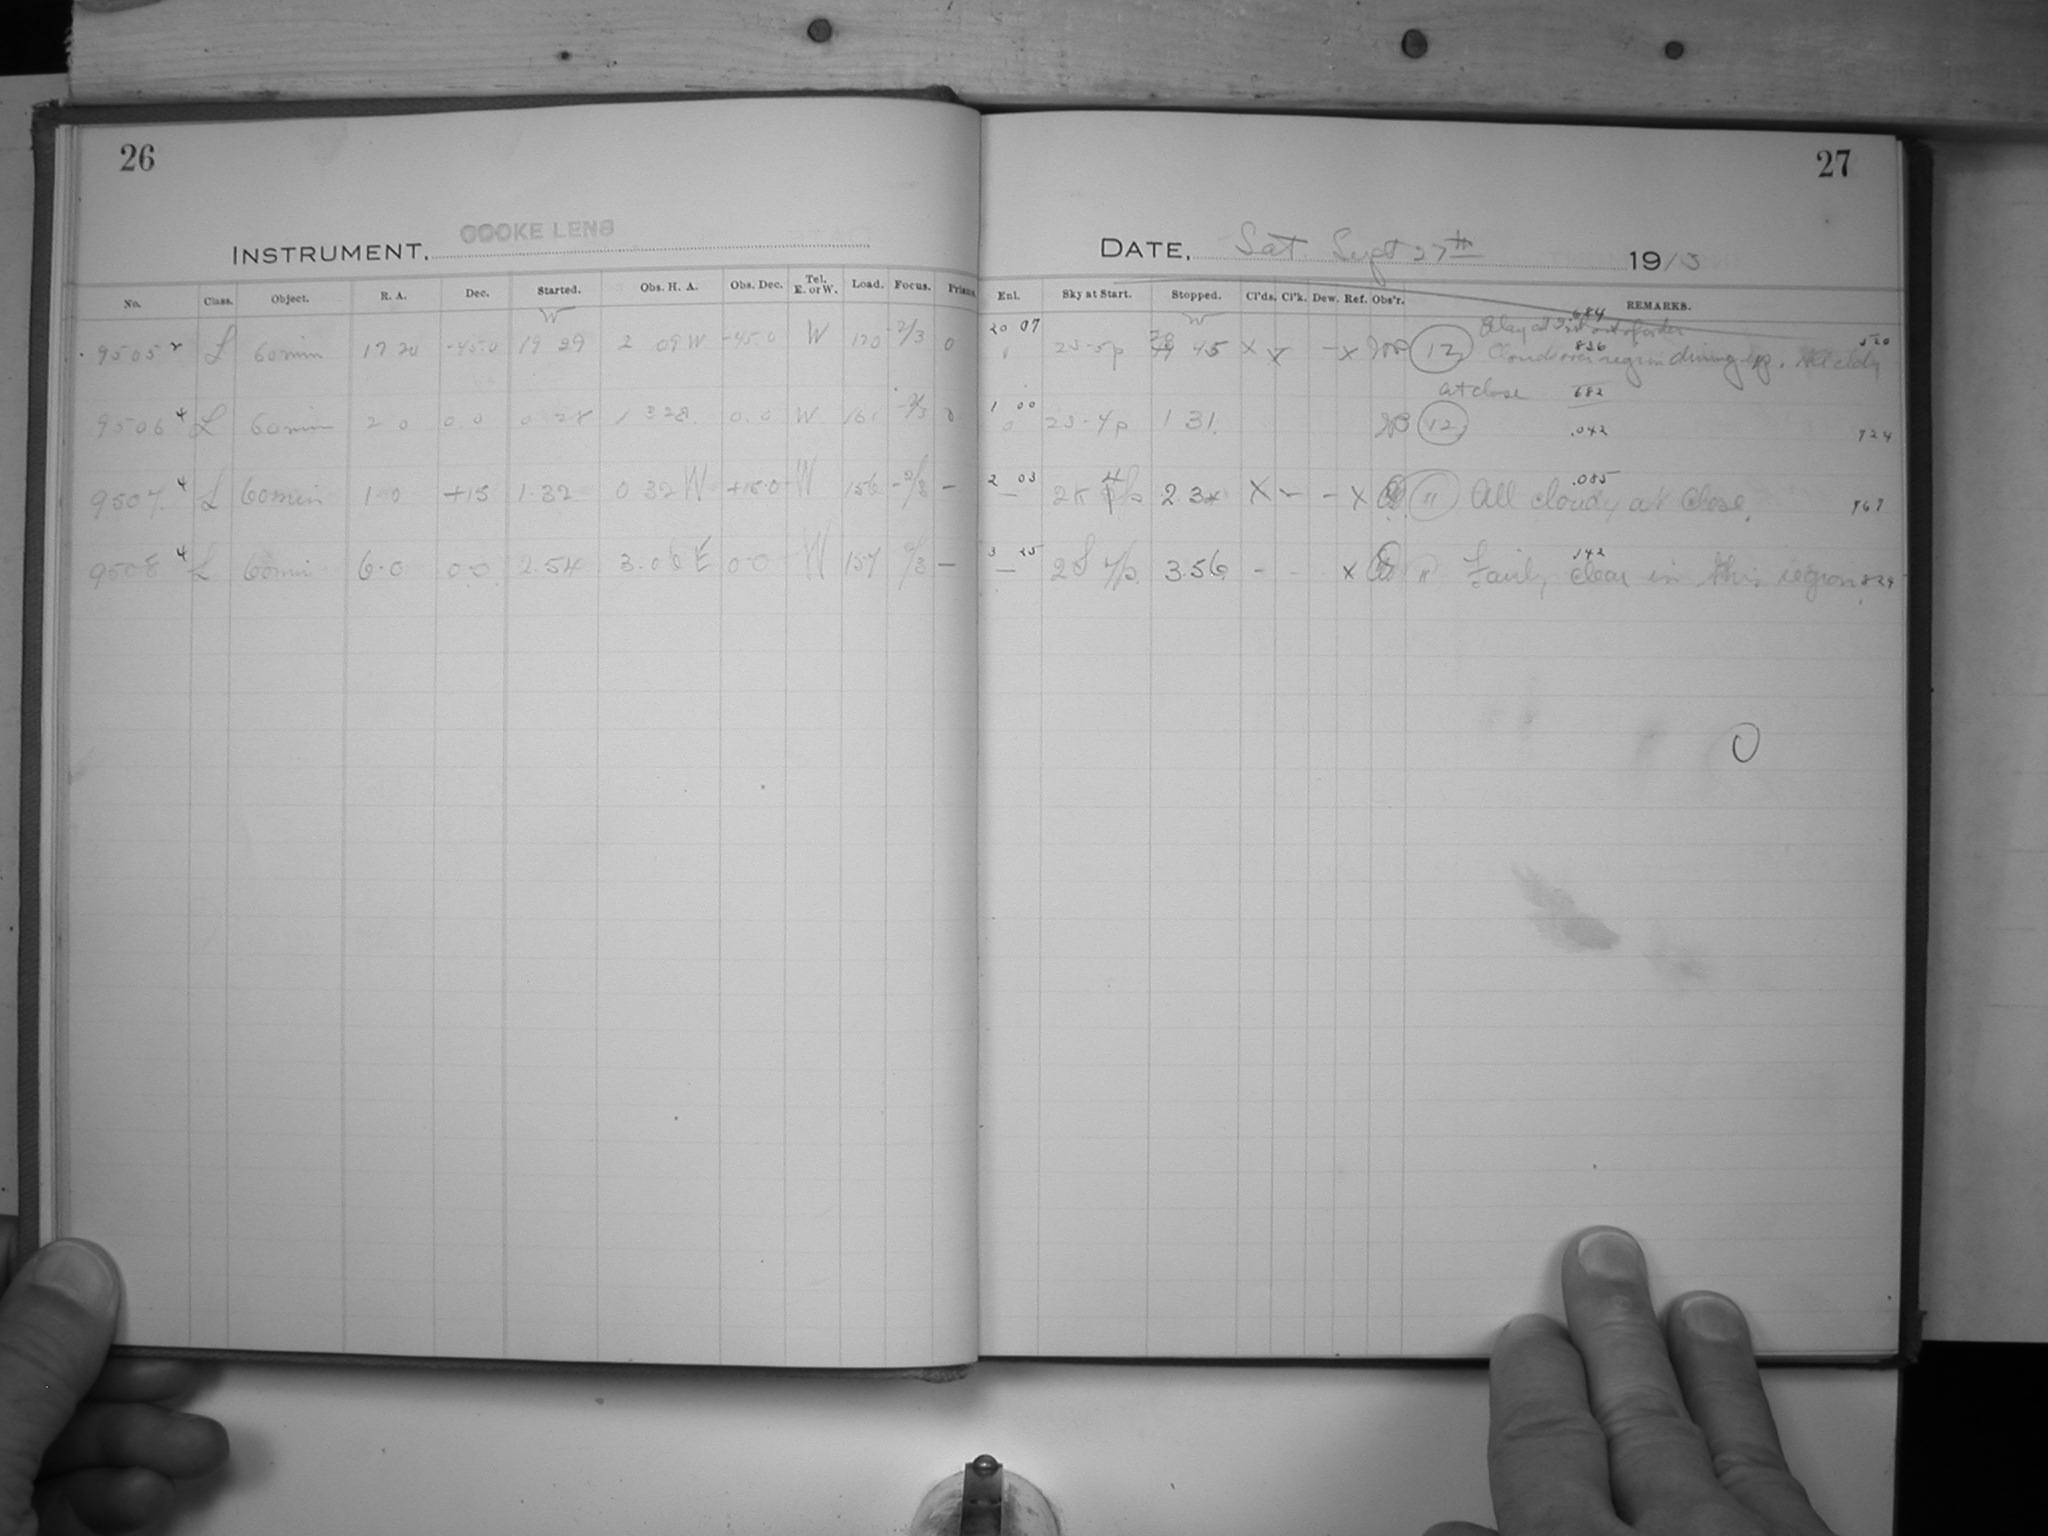 26
INSTRUMENT, COOKE LENS
No. Class. Object. R. A. Dec. Started. Obs. H. A. Obs. Dec. Tel. E. or W. Load. Focus. Prisms
W
9505 L 60min 17 20 -45.0 19 29 2 09W -45.0 W 120 -2/3 0
9506 4 L 60min 2 0 0.0 0 28 1 32E 0.0 W 161 -2/3 0
9507 4 L 60min 1.0 +15 1.32 0 32 W +15.0 W 156 -2/3 -
9508 4 L 60min 6.0 00 2.54 3.06 E 00 W 157 2/3 -
27
DATE, Sat. Sept 27th 1913
Enl. Sky at Start. Stopped. Cl'ds. Cl'k. Dew. Ref. Obs'r. REMARKS.
.684
20 07 2S-5p 45 X X - X 12 Clouds over region during exp. All cldy 520
.836
at close 682
1 00 0 2S-4p 1 31. 12 .042 724
2 03 - 2.3 X - - X " All cloudy at close. .085 767
3 25 - 2S 4p. 3.56 - X " Fairly clear in this region. .142 824